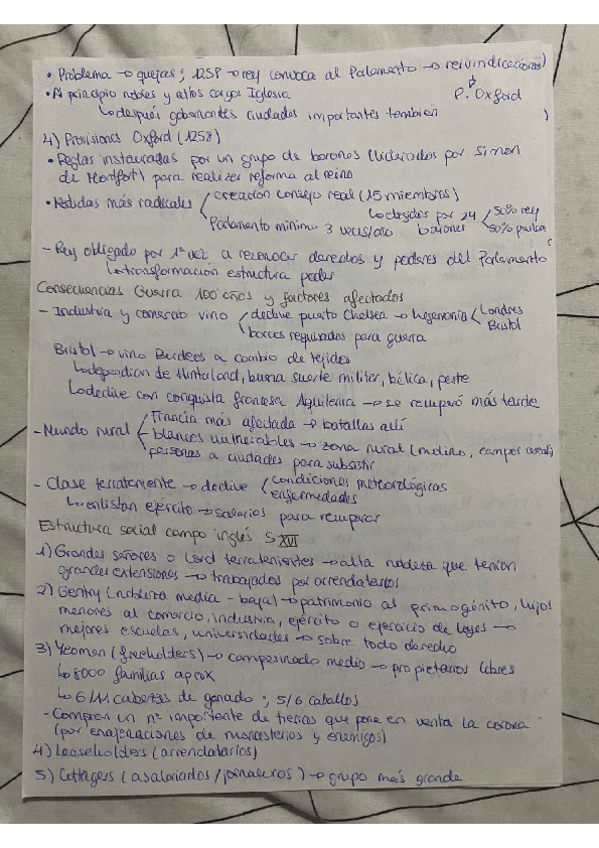 • Problema → quejas; 1258 → rey convoca al Parlamento → reivindicaciones
• Al principio nobles y altos cargos Iglesia P. Oxford
↳ después gobernantes ciudades importantes también
4) Provisiones Oxford (1258)
• Reglas instauradas por un grupo de barones (liderados por Simon
de Montfort) para realizar reforma al reino
• Medidas más radicales creación consejo real (15 miembros)
↳ elegidos por 24 barones 50% rey 50%
Parlamento mínimo 3 veces/año
- Rey obligado por 1ª vez a reconocer derechos y poderes del Parlamento
↳ transformación estructura poder
Consecuencias Guerra 100 años y factores afectados
- Industria y comercio vino declive puerto Chelsea → hegemonía Londres Bristol
barcos requisados para guerra
Bristol → vino Burdeos a cambio de tejidos
↳ dependían de Hinterland, buena suerte militar, bélica, peste
↳ declive con conquista francesa Aquitania → se recuperó más tarde
- Mundo rural Francia más afectada → batallas allí
blancos vulnerables → zona rural (molino, campos
personas a ciudades para subsistir
- Clase terrateniente → declive condiciones meteorológicas
enfermedades
↳ enlistan ejército → salarios para recuperar
Estructura social campo inglés S XVI
1) Grandes señores o Lord terratenientes → alta nobleza que tenían
grandes extensiones → trabajados por arrendatarios
2) Gentry (nobleza media - baja) → patrimonio al primogénito, hijos
menores al comercio, industria, ejército o ejercicio de leyes →
mejores escuelas, universidades → sobre todo derecho
3) Yeomen (freeholders) → campesinado medio → propietarios libres
↳ 8000 familias aprox
↳ cabezas de ganado; 5/6 caballos
- Compran un nº importante de tierras que pone en venta la corona
(por enajenaciones de monasterios y enemigos)
4) Leaseholders (arrendatarios)
5) Cottagers (asalariados/jornaleros) → grupo más grande